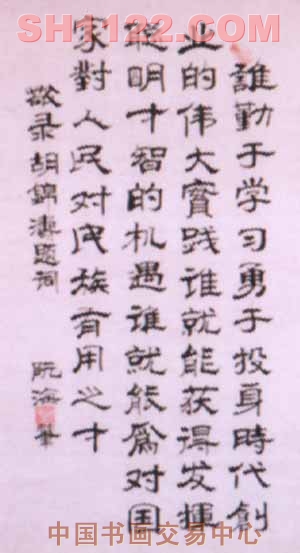 SH1122.COM
誰勤于学习勇于投身時代創
业的伟大實践谁就能获得发揮
聪明才智的机遇谁就能爲对国
家對人民对民族有用之才
敬录胡錦濤题词
阮海
筆
中国书画交易中心